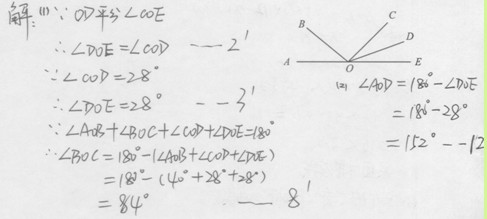 解: (1) ∵ OD平分∠COE
∴ ∠DOE = ∠COD —— 2'
∵ ∠COD = 28°
∴ ∠DOE = 28° —— 3'
∵ ∠AOB + ∠BOC + ∠COD + ∠DOE = 180°
∴ ∠BOC = 180° - (∠AOB + ∠COD + ∠DOE)
= 180° - (40° + 28° + 28°)
= 84° —— 8'
A B C D E O
(2) ∠AOD = 180° - ∠DOE
= 180° - 28°
= 152° -- 12